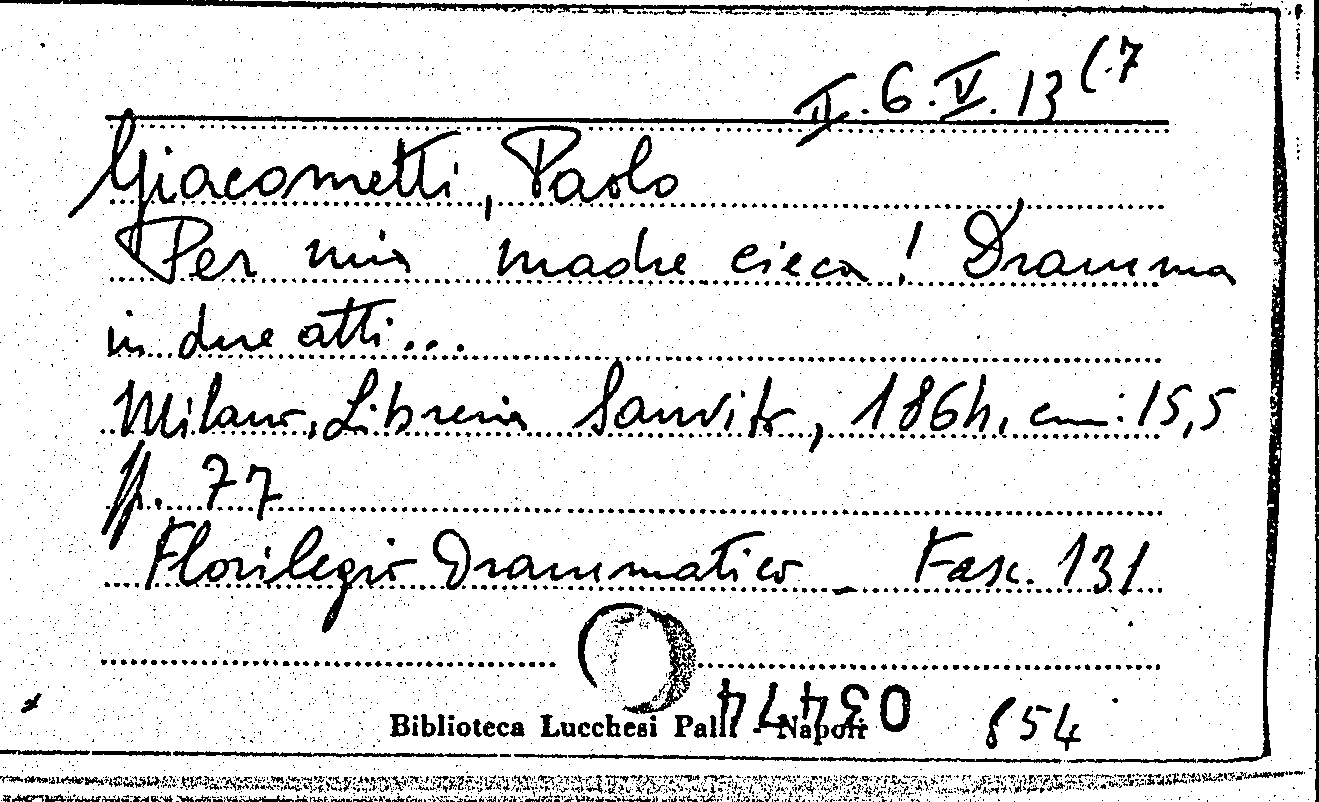 II.6.V.13(.7
Giacometti, Paolo
Per mia madre cieca! Dramma
in due atti...
Milano, Libreria Sanvito, 1864, cm: 15,5
p. 77
Florilegio Drammatico - Fasc. 131
Biblioteca Lucchesi Palli - Napoli
03474
854